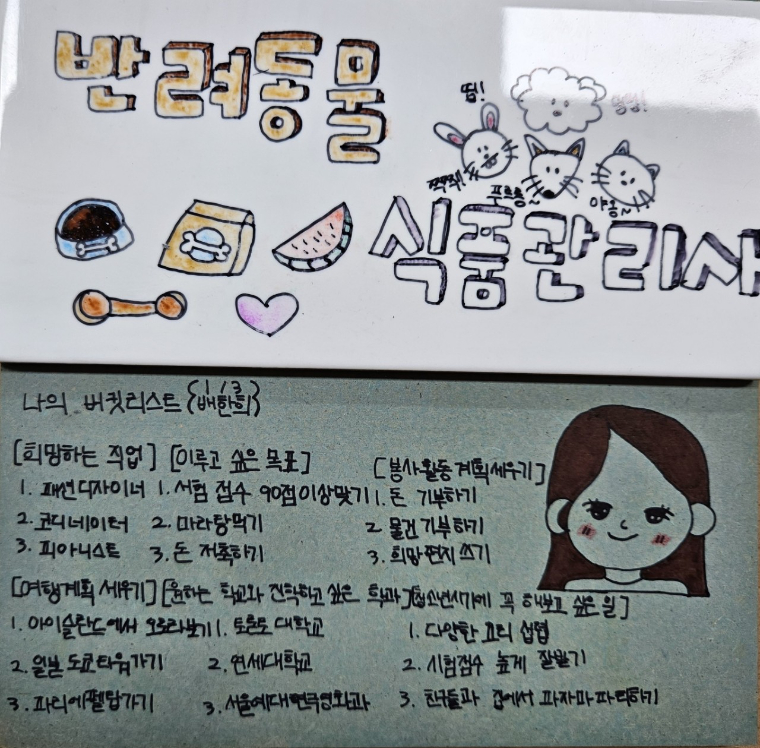 반려동물
띱!
멍멍!
찍찍!
푸르릉~
야옹~
식품관리사
나의 버킷리스트 {배한희}
1/3
[희망하는 직업]
1. 패션디자이너
2. 코디네이터
3. 피아니스트
[이루고 싶은 목표]
1. 시험 점수 90점이상맞기
2. 마라탕먹기
3. 돈 저축하기
[봉사활동계획세우기]
1. 돈 기부하기
2. 물건기부하기
3. 희망편지 쓰기
[여행계획 세우기]
1. 아이슬란드에서 오로라보기
2. 일본 도쿄타워가기
3. 파리에펠탑가기
[원하는 학교와 진학하고 싶은 학과]
1. 토론토 대학교
2. 연세대학교
3. 서울예대연극영화과
[청소년시기에 꼭 해보고 싶은 일]
1. 다양한 요리 섭렵
2. 시험점수 높게 잘받기
3. 친구들과 집에서 파자마파티하기